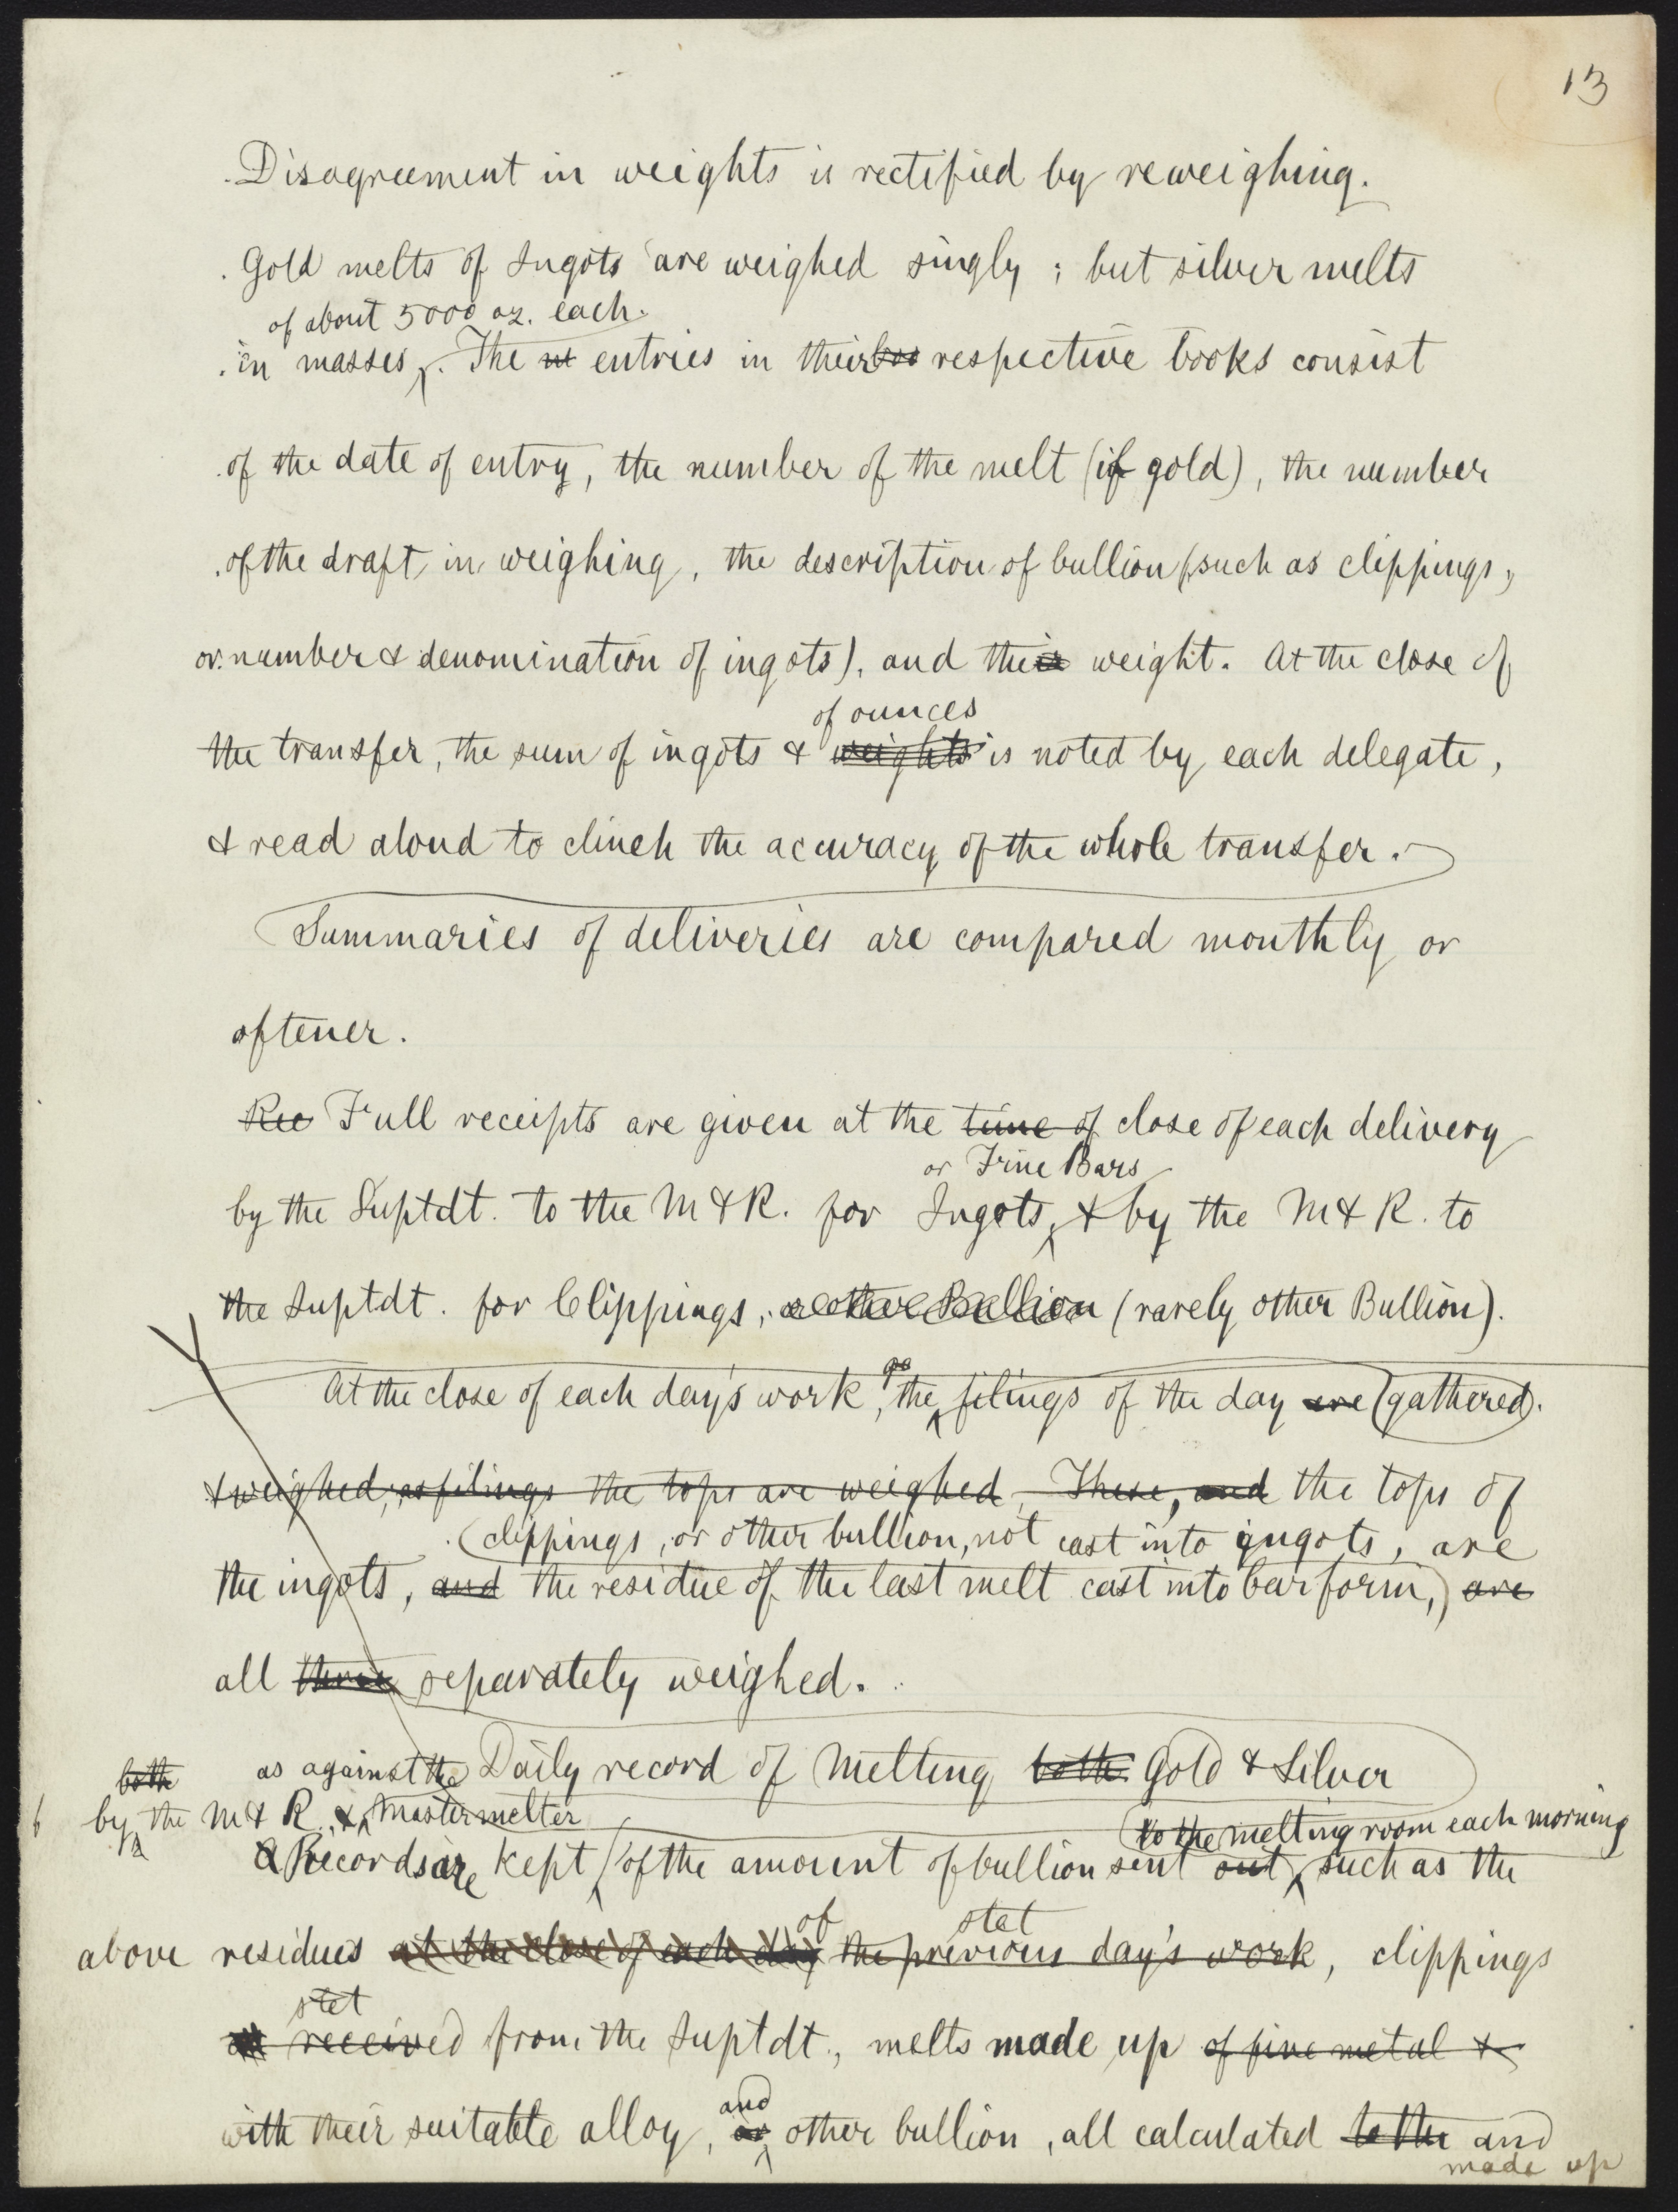 13
Disagreement in weights is rectified by reweighing.
Gold melts of Ingots are weighed singly; but silver melts
of about 5000 oz. each.
in masses. The entries in their respective books consist
of the date of entry, the number of the melt (if gold), the number
of the draft in weighing, the description of bullion (such as clippings,
or number & denomination of ingots), and the weight. At the close of
of ounces
the transfer, the sum of ingots & weights is noted by each delegate,
& read aloud to clinch the accuracy of the whole transfer.
Summaries of deliveries are compared monthly or
oftener.
Rec Full receipts are given at the time of close of each delivery
or Fine Bars
by the Suptdt. to the M & R. for Ingots, & by the M & R. to
the Suptdt. for Clippings, or other Bullion (rarely other Bullion).
At the close of each day's work, the filings of the day are gathered.
& weighed, as filings the tops are weighed. These, and the tops of
clippings, or other bullion, not cast into ingots, are
the ingots, and the residue of the last melt cast into bar form, are
all three separately weighed.
both as against the Daily record of Melting both Gold & Silver
by the M & R. & Master melter
to the melting room each morning
Records are kept of the amount of bullion sent out, such as the
of stet
above residues at the close of each day the previous day's work, clippings
stet
received from the Suptdt., melts made up of fine metal &
and
with their suitable alloy, or other bullion, all calculated to the and
made up